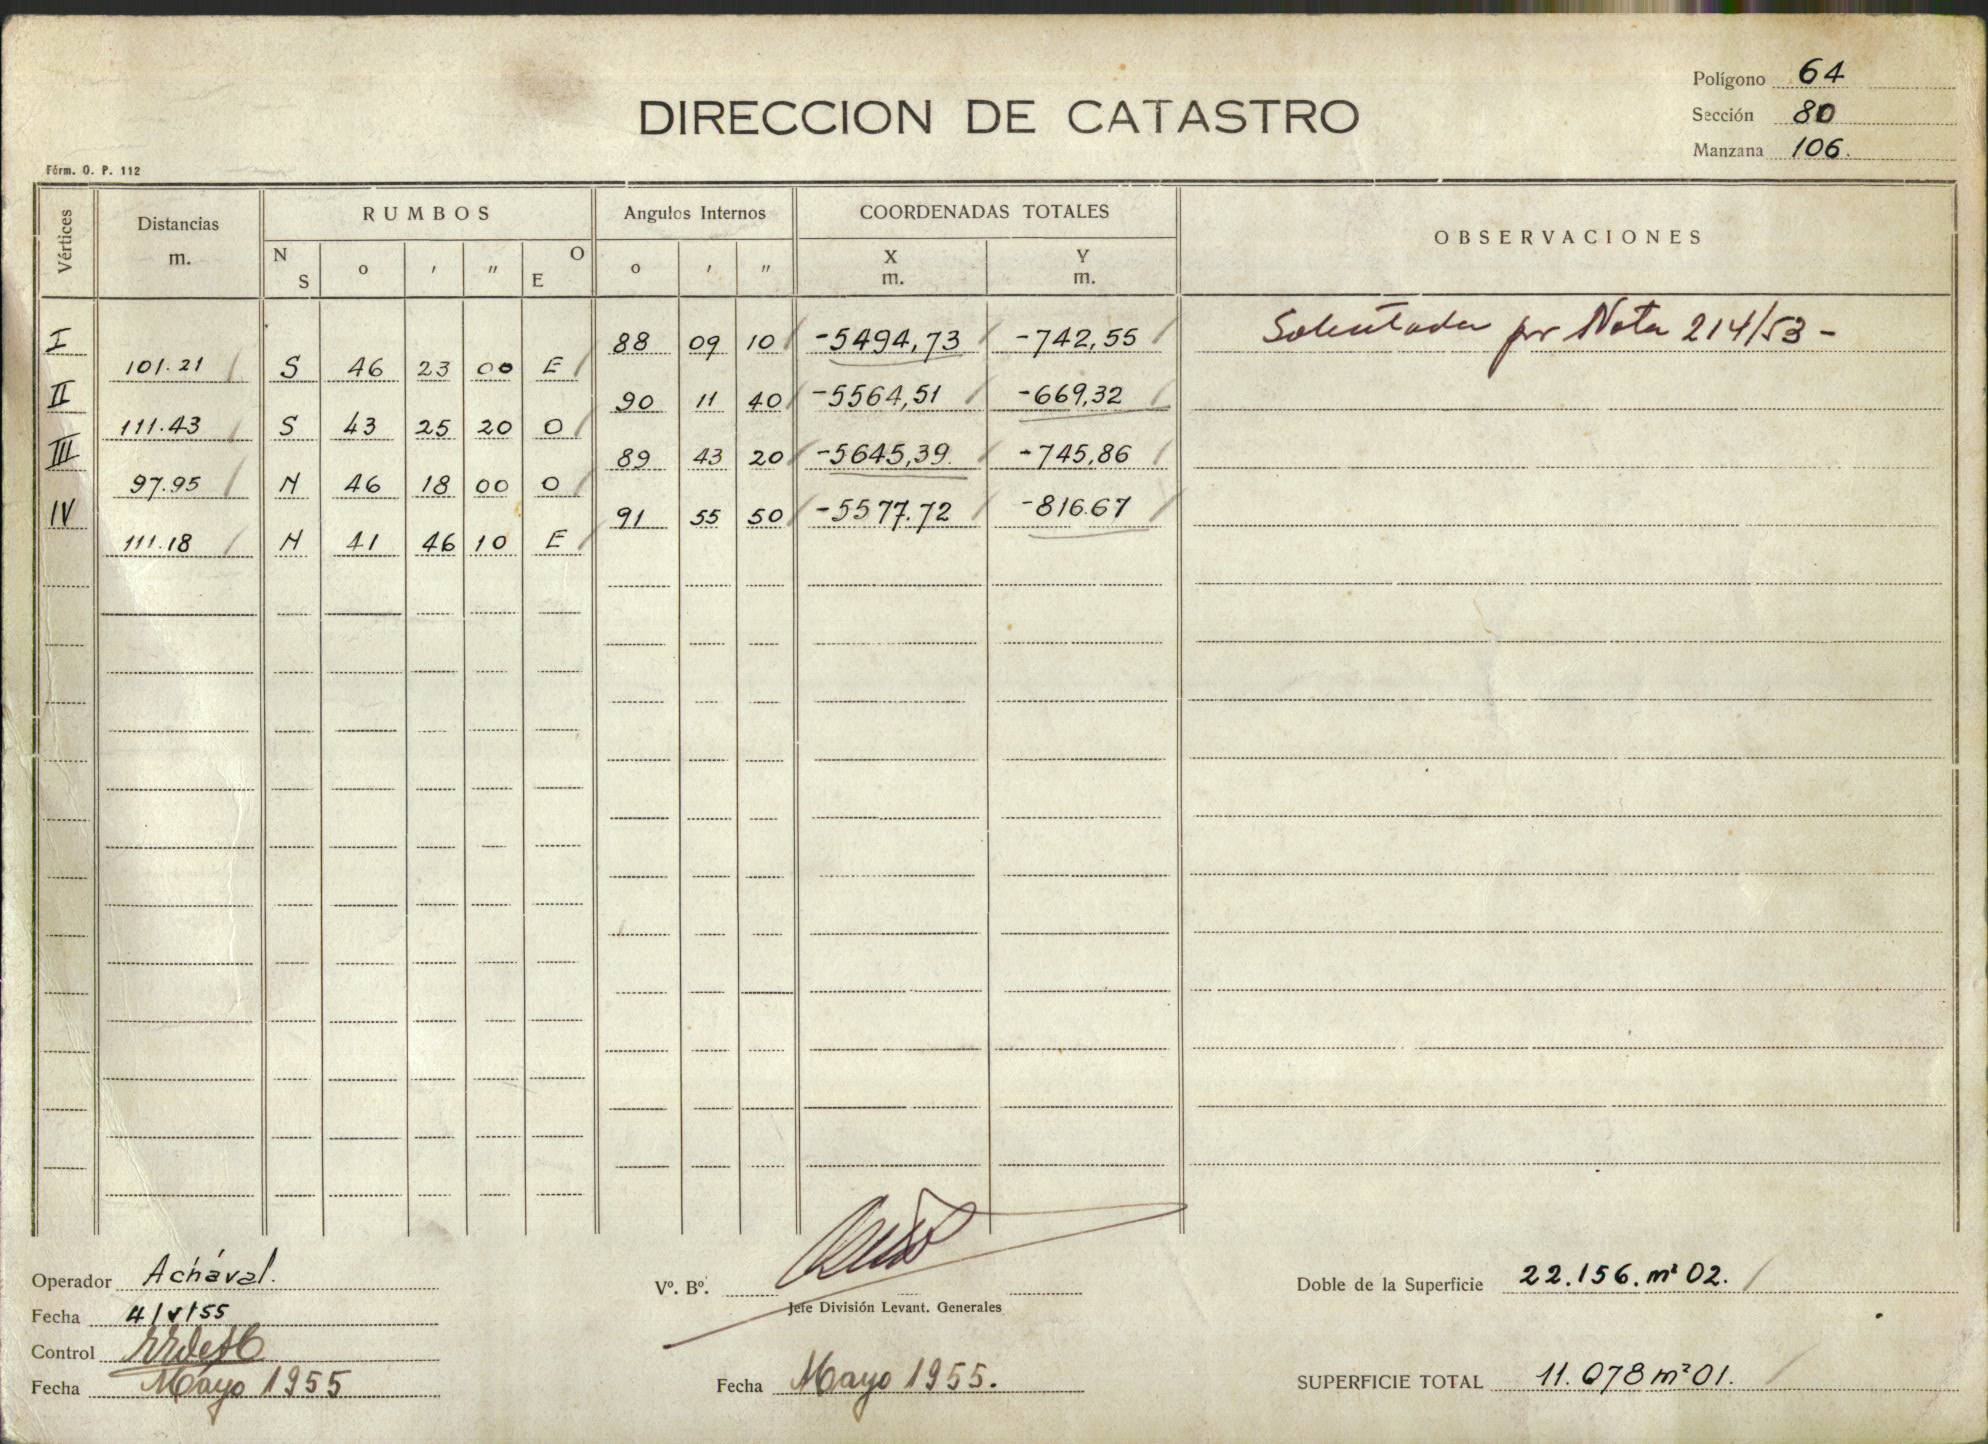 Polígono 64
DIRECCION DE CATASTRO
Sección 80
Manzana 106.
Fórm. O. P. 112
Vértices Distancias m. RUMBOS Angulos Internos COORDENADAS TOTALES OBSERVACIONES
N S o ' " E O o ' " X m. Y m.
I 88 09 10 -5494,73 -742,55 Solicitada por Nota 214/53 -
101.21 S 46 23 00 E
II 90 11 40 -5564,51 -669,32
111.43 S 43 25 20 O
III 89 43 20 -5645,39 -745,86
97.95 N 46 18 00 O
IV 91 55 50 -5577.72 -816.67
111.18 N 41 46 10 E
Operador Achával.
Vº. Bº.
Doble de la Superficie 22.156. m² 02.
Jefe División Levant. Generales
Fecha 4/V/55
Control
Fecha Mayo 1955
Fecha Mayo 1955.
SUPERFICIE TOTAL 11.078 m² 01.